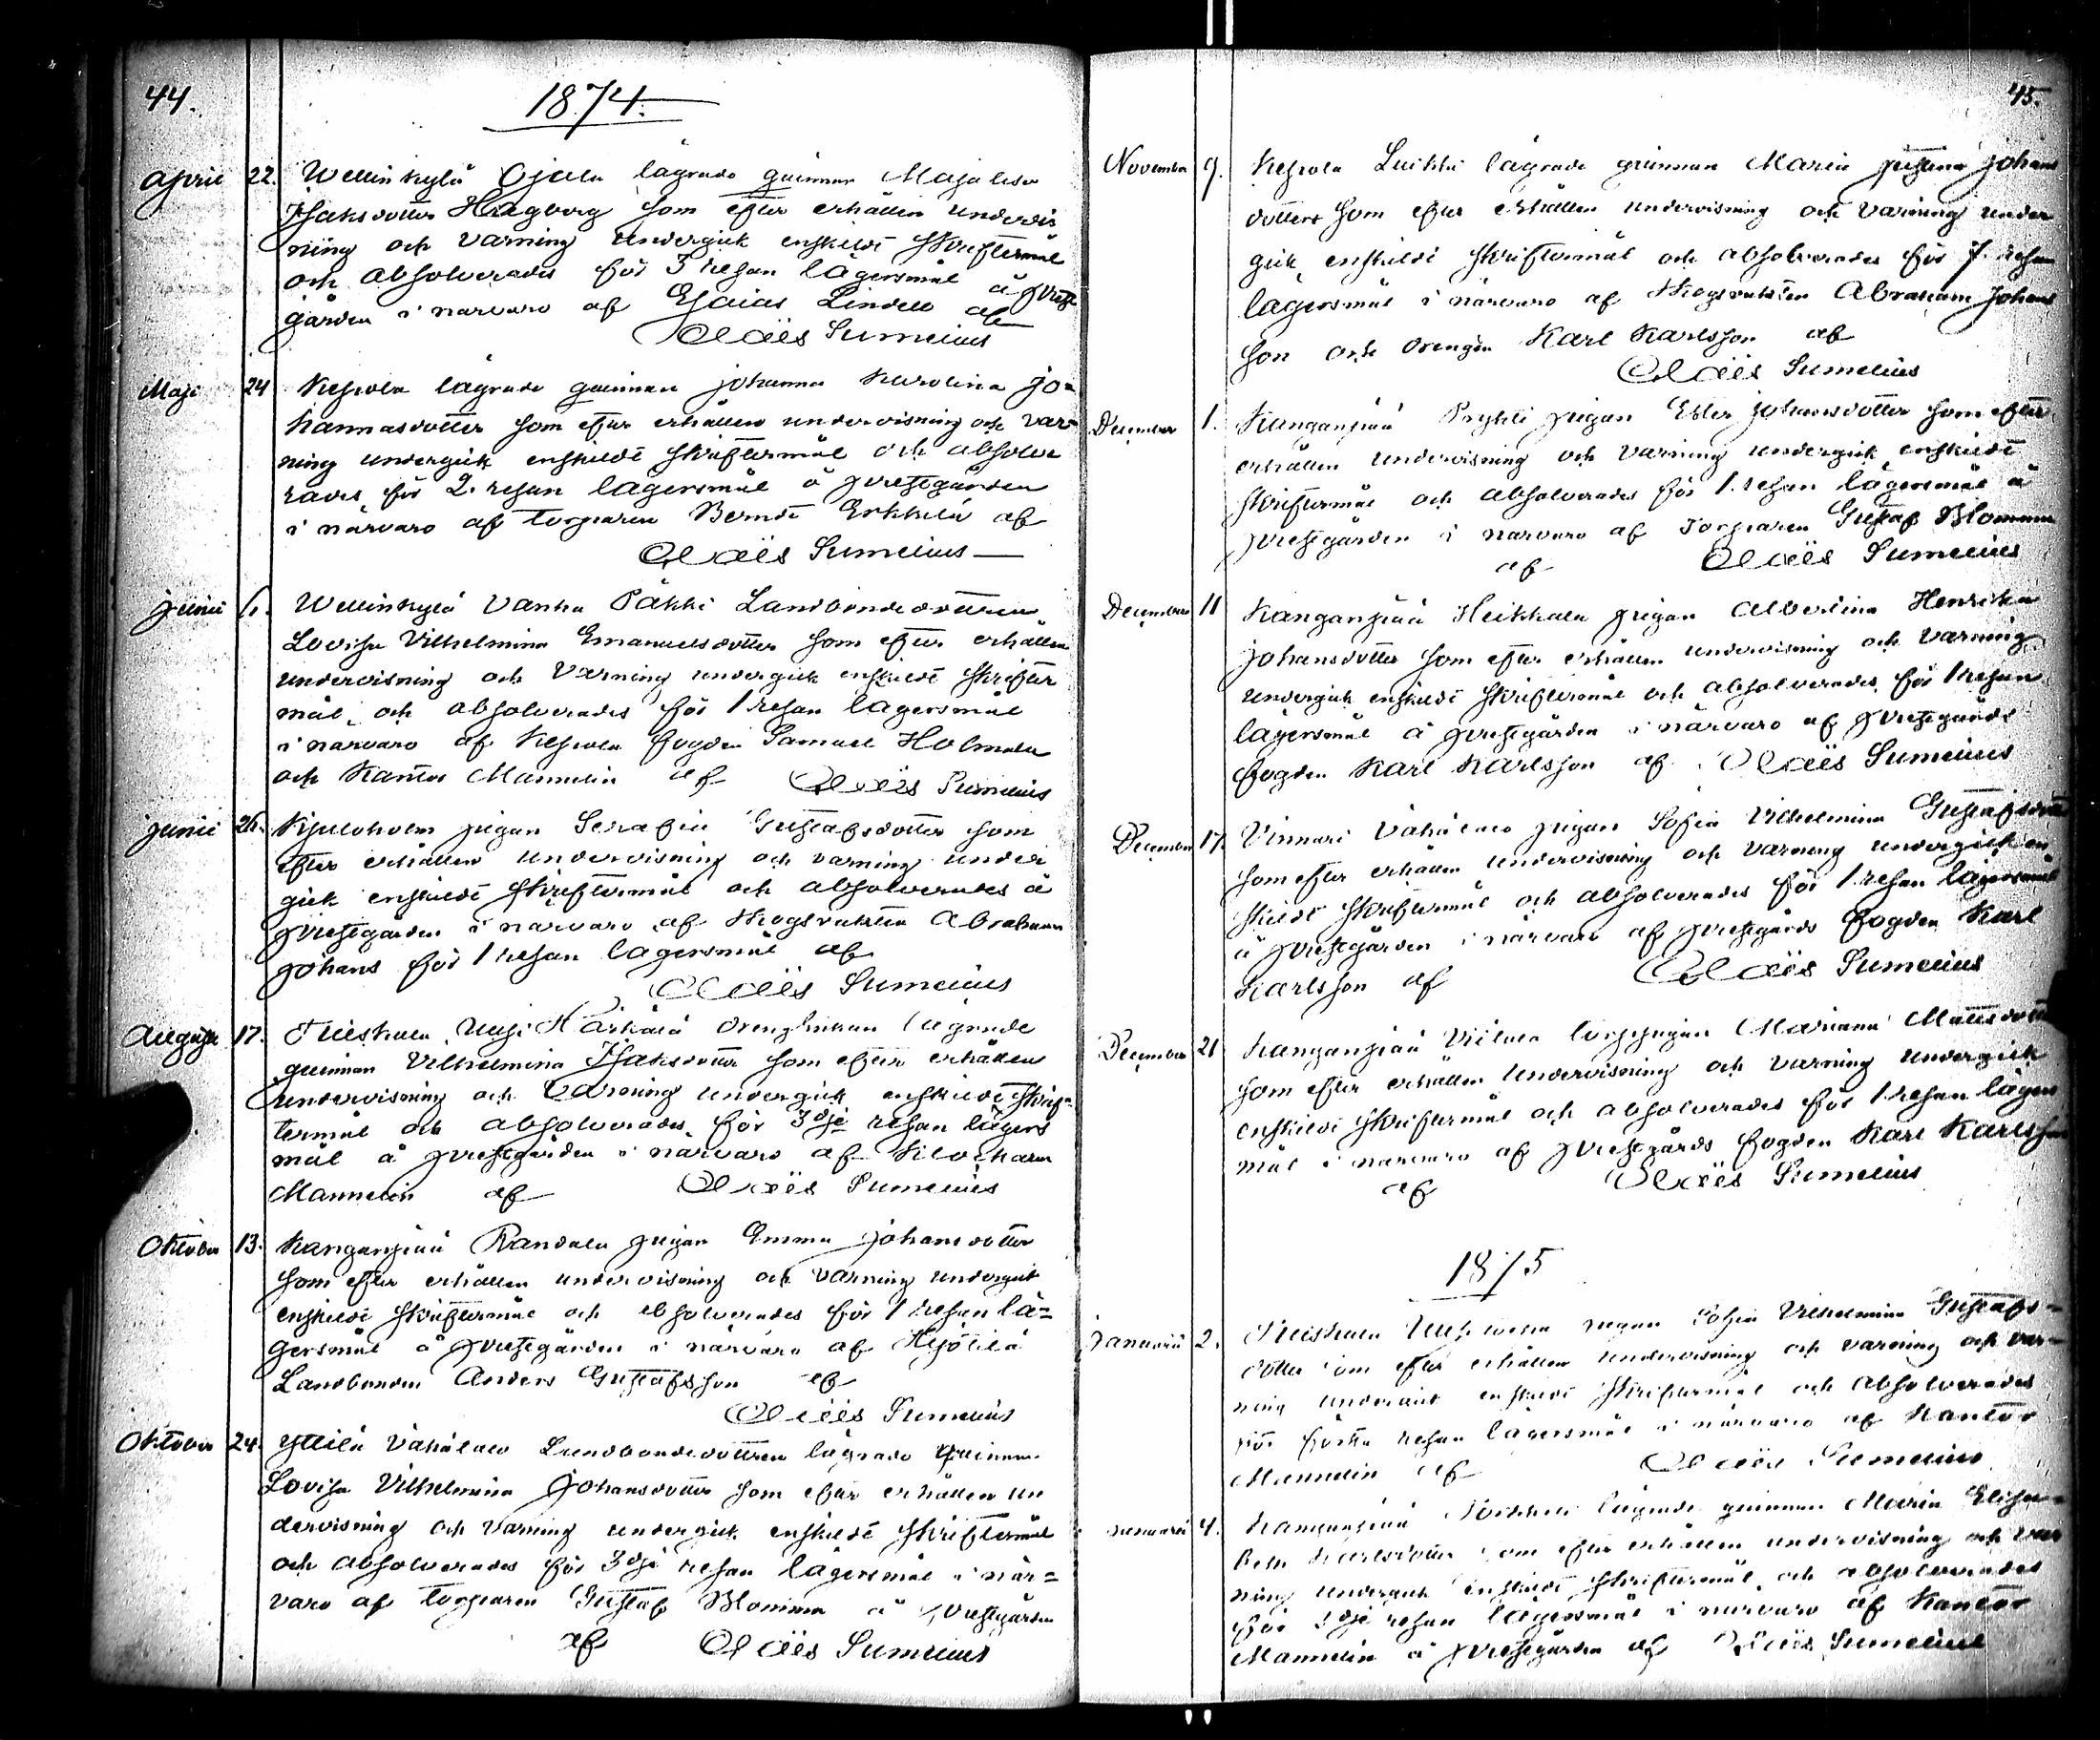 44.
1874.
April 22. Wellinkylä Ojala lägrade quinnan Maja Lisa
Isaksdotter Hagborg som efter erhållen undervis
ning och varning undergick enskildt skriftermål
och absolverades för 3 resan lägersmål å prest-
gården i närvaro af Esaias Lindell af
Claës Sumelius
Maji 24 Kepola lägrade quinnan Johanna Karolina Jo=
hannasdotter som efter erhållen undervisning och var=
ning undergick enskildt skriftermål och absolve
rades för 2. resan lägersmål å prestgården
i närvaro af torparen Berndt Erkkilä af
Claës Sumelius
Junii Wellinkylä Vanha Päkki Landbondedottren
Lovisa Vilhelmina Emanuelsdotter som efter erhållen
undervisning och varning undergick enskildt skrifter
mål och absolverades för 1 resan lägersmål
i närvaro af Kepola fogden Samuel Holmala
och Kantor Mannelin af Claës Sumelius
Junii 26. Kjuloholm pigan Serafia Gustafsdotter som
efter erhållen undervisning och varning under
gick enskildt skriftermål och absolverades å
prestgården i närvaro af skogsvakten Abraham
Johans för 1 resan lägersmål af
Claës Sumelius
Augusti 17. Uusi Härkälä lägrade
quinnan Vilhelmina Isaksdotter som efter erhållen
undervisning och varning undergick enskildt skrif=
termål och absolverades för 3dje resan lägers
mål å prestgården i närvaro af
Mannelin af Claës Sumelius
Oktober 13. Kanganpää Randala pigan Emma Johansdotter
som efter erhållen undervisning och varning undergick
enskildt skriftermål och absolverades för 1 resan lä=
gersmål å prestgården i närvaro af
Landbonden Anders Gustafsson af
Claës Sumelius
Oktober 24. Yttilä Vähätalo Landbondedottren lägrade quinnan
Lovisa Vilhelmina Johansdotter som efter erhållen un
dervisning och varning undergick enskildt skriftermål
och absolverades för 3dje resan lägersmål i när=
varo af torparen Gustaf Blomman å prestgården
af Claës Sumelius
45.
November 9. Kepola Luikki lägrade quinnan Maria Johans
dotter som efter erhållen undervisning och varning under
gick enskildt skriftermål och absolverades för resan
lägersmål i närvaro af skogsvakten Abraham Johans
son och drengen Karl Karlsson af
Claës Sumelius
December 1. Kanganpää Prykti pigan Ester Johansdotter som efter
erhållen undervisning och varning undergick enskildt
skriftermål och absolverades för 1. resan lägersmål å
prestgården i närvaro af torparen Gustaf Blomman
af Claës Sumelius
December 11 Kanganpää Heikkala pigan Albertina Henrika
Johansdotter som efter erhållen undervisning och varning
undergick enskildt skriftermål och absolverades för 1 resan
lägersmål å prestgården i närvaro af prestgårds
fogden Karl Karlsson af Claës Sumelius
December 17. Vinnari Vähätalo pigan Sofia Vilhelmina Gustafsdotter
som efter erhållen undervisning och varning undergick en
skildt skriftermål och absolverades för 1 resan lägersmål
å prestgården i närvaro af prestgårds fogden Karl
Karlsson af Claës Sumelius
December 21 Kanganpää torppigan Mariana Mattsdotter
som efter erhållen undervisning och varning undergick
enskildt skriftermål och absolverades för 1 resan lägers
mål i närvaro af prestgårds fogden Karl Karlsson
af Claës Sumelius
1875
Januarii 2. pigan Sofia Vilhelmina Gustafs=
dotter som efter erhållen undervisning och varning och var=
ning undergick enskildt skriftermål och absolverades
för första resan lägersmål i närvaro af Kantor
Mannelin af Claës Sumelius
Januarii 4. Kanganpää lägrade quinnan Maria Elisa=
beth Karlsdotter som efter erhållen undervisning och var
ning undergick enskildt skriftermål och absolverades
för resan lägersmål i närvaro af Kantor
Mannelin å prestgården af Claës Sumelius